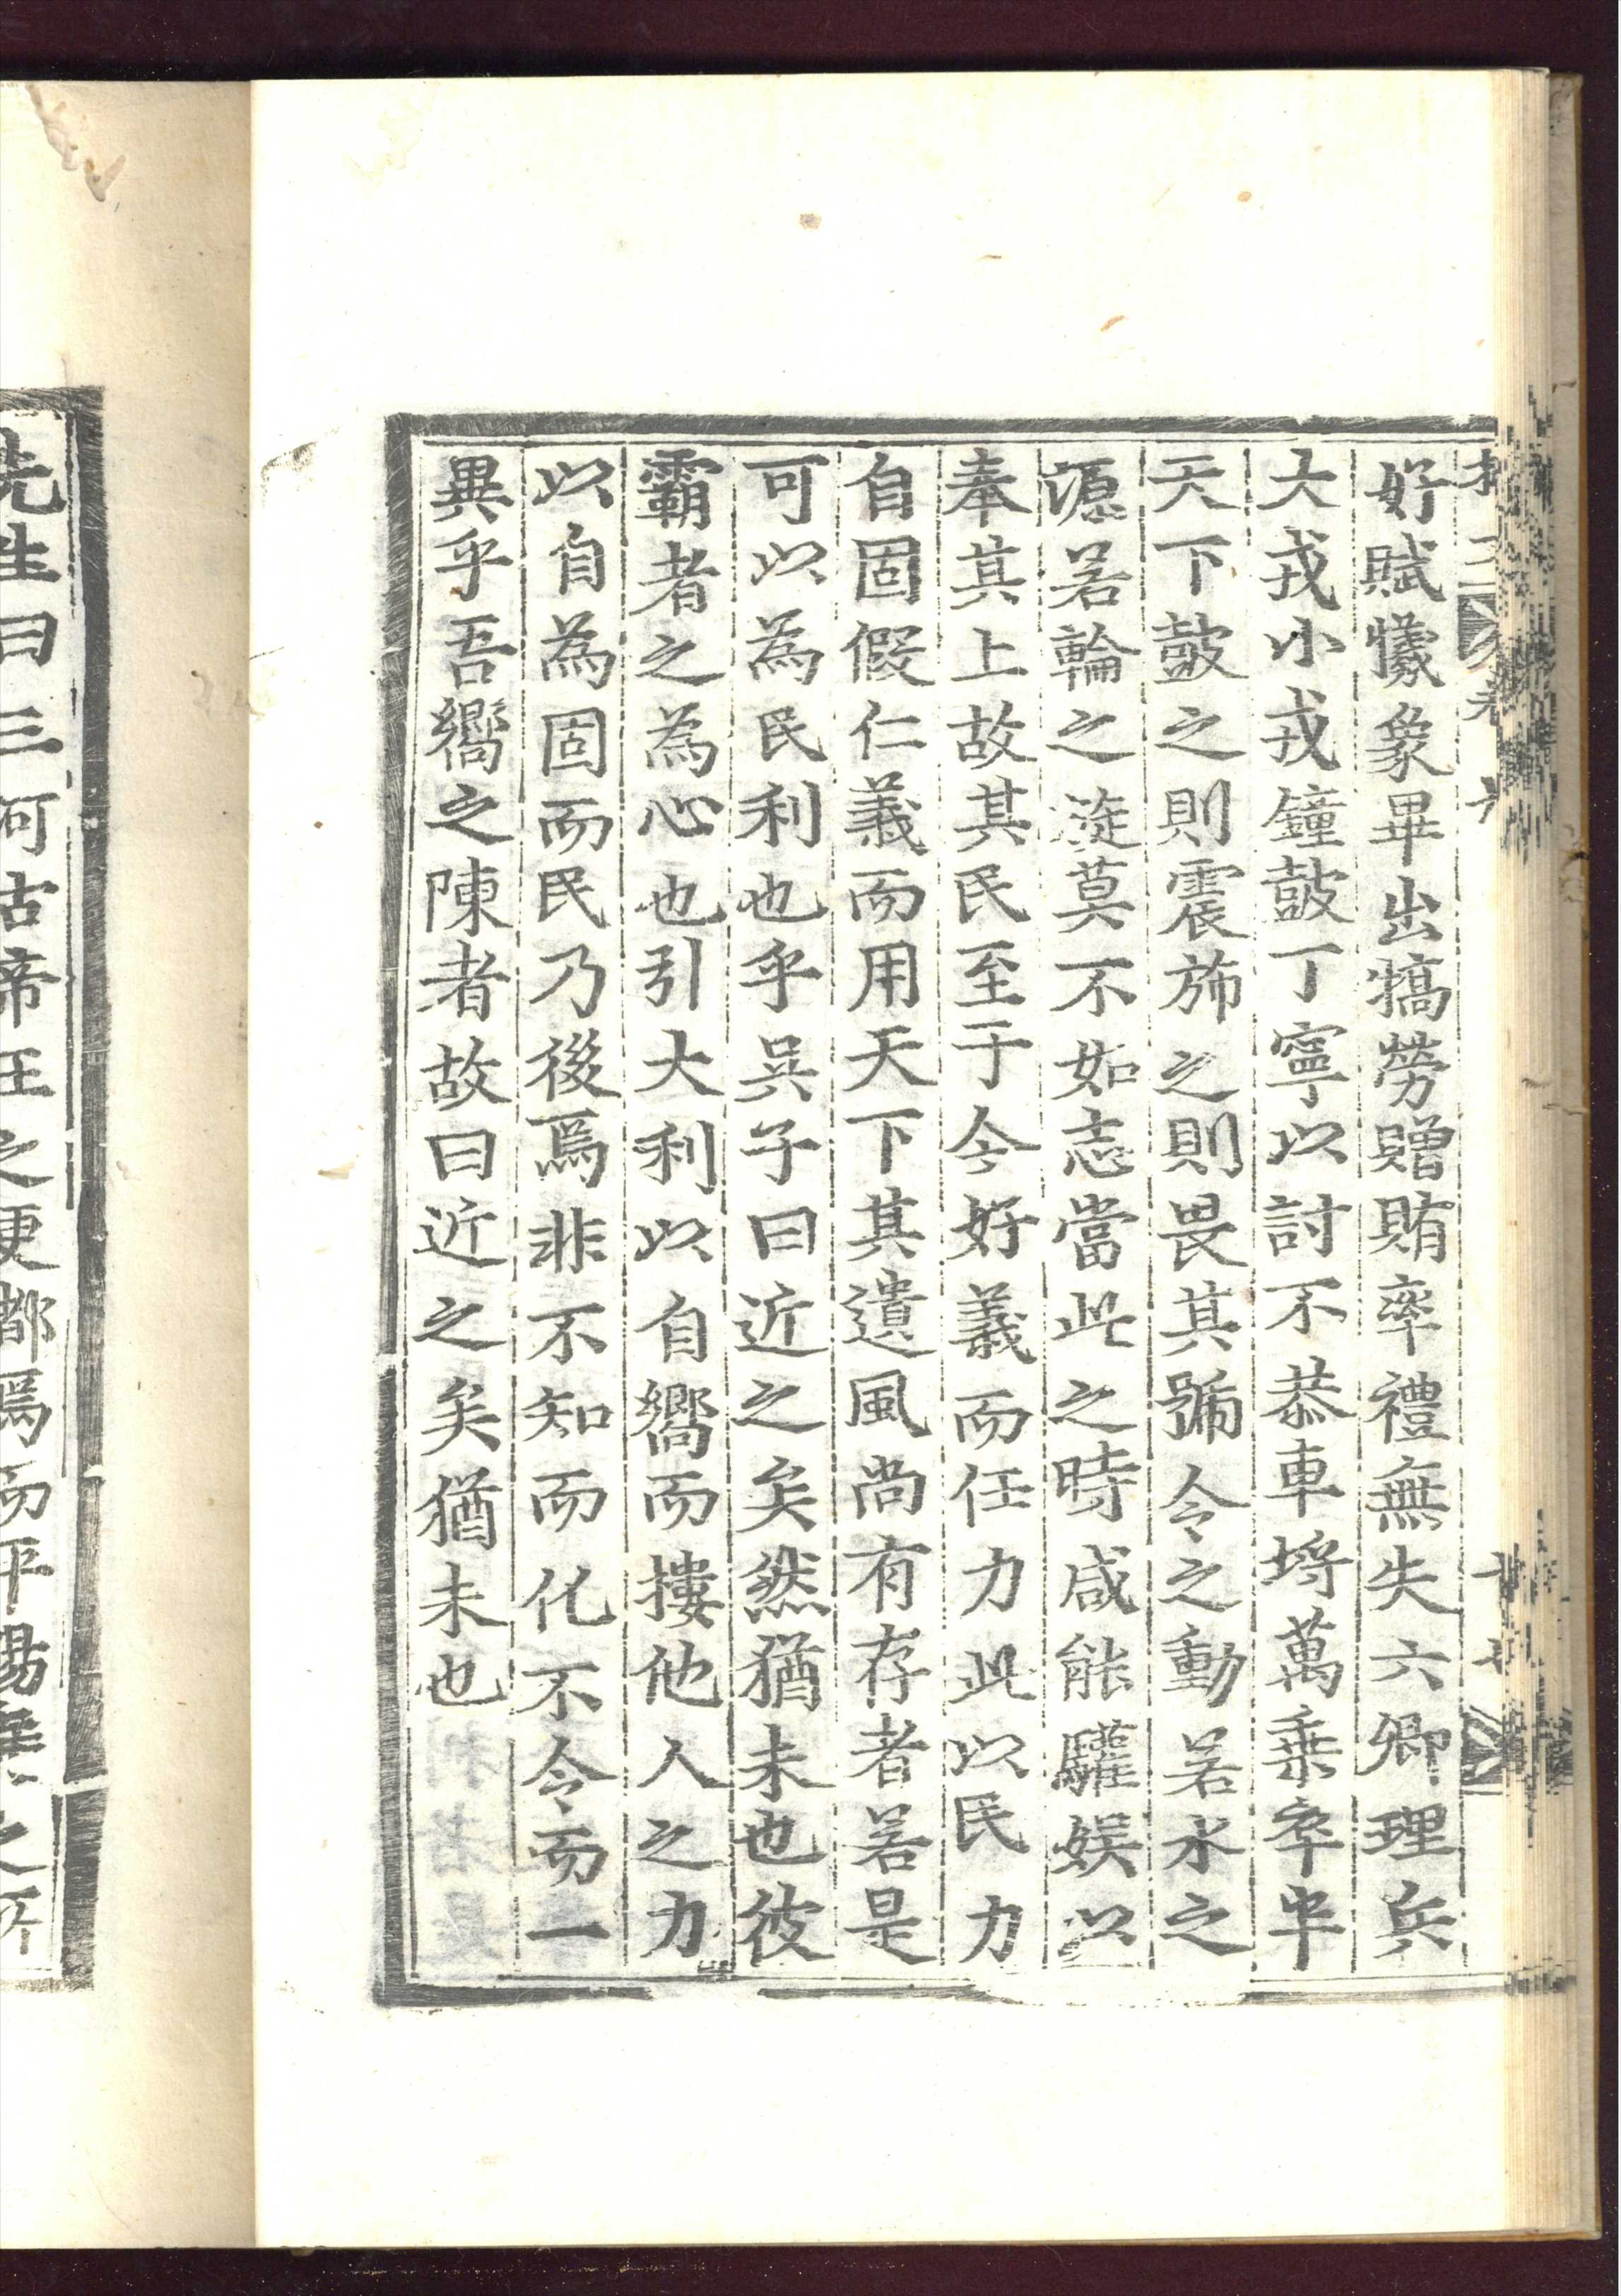 好賦犧象畢出犒勞贈賄率禮無失六卿理兵
大戎小戎鐘鼓丁寧以討不恭車埒萬乘卒半
天下鼓之則震旆之則畏其號令之動若水之
源若輪之旋莫不如志當此之時咸能驩娛以
奉其上故其民至于今好義而任力此以民力
自固假仁義而用天下其遺風尚有存者若是
可以為民利也乎吳子曰近之矣然猶未也彼
霸者之為心也引大利以自嚮而摟他人之力
以自為固而民乃後焉非不知而化不令而一
異乎吾嚮之陳者故曰近之矣猶未也
先生曰三河古帝王之更都焉而平陽堯之所